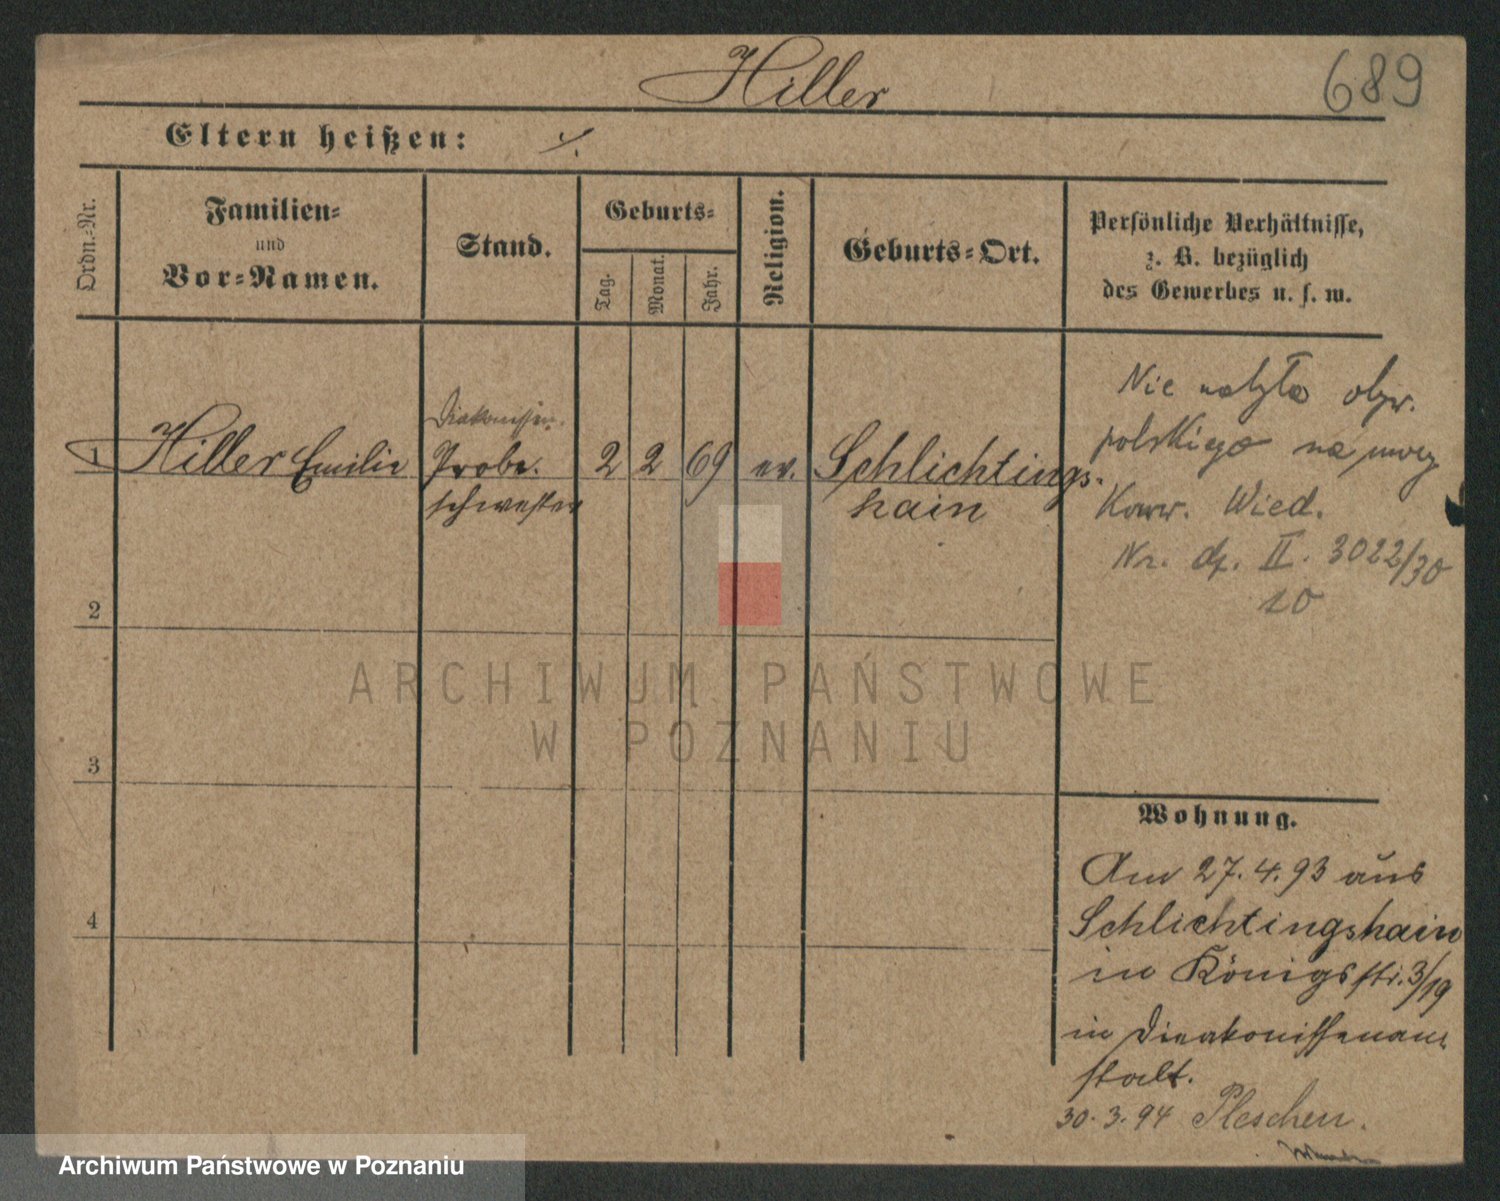 Hiller
689
Eltern heißen: ./.
Ordn.-Nr.
Familien-
und
Vor-Namen.
Stand.
Geburts-
Tag.
Monat.
Jahr.
Religion.
Geburts-Ort.
Persönliche Verhältnisse,
z. B. bezüglich
des Gewerbes u. s. w.
1
Hiller Emilie
Diakonissen.
Probe.
schwester
2
2
69
ev.
Schlichtings-
hain
Nie obyw.
polskiego na mocy
Konw. Wied.
Nr. II. 3022/30
10
2
3
4
ARCHIWUM PAŃSTWOWE
W POZNANIU
Wohnung.
Am 27.4.93 aus
Schlichtingshain
in Königsstr. 3/19
in Dieakonissenan-
stalt.
30.3.94 Pleschen.
Archiwum Państwowe w Poznaniu